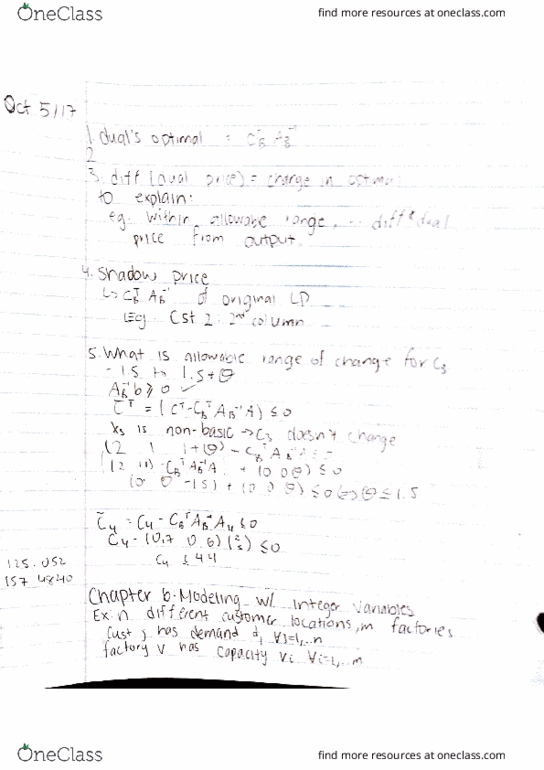 OneClass
find more resources at oneclass.com
Oct 5/17
1. dual's optimal = C_B^T A_B^-1
2
3. diff (dual price) = change in
to explain:
eg. within allowable range, ... diff * dual
price from output.
4. Shadow price
↳ C_B^T A_B^-1 of original LP
Eg. Cst 2: 2nd column
5. What is allowable range of change for C3
-1.5 to 1.5+θ
A_B^-1 b ≥ 0 ✓
C̄^T = (C^T - C_B^T A_B^-1 A) ≤ 0
X3 is non-basic → C3 doesn't change
(2 1 1+θ) - C_B^T A_B^-1 A
(2 1 1) - C_B^T A_B^-1 A + (0 0 θ) ≤ 0
(0 0 -1.5) + (0 0 θ) ≤ 0 ⇔ θ ≤ 1.5
C̄4 = C4 - C_B^T A_B^-1 A4 ≤ 0
C4 - (0.7 0.6) ≤ 0
C4 ≤ 4.4
125.052
157 4840
Chapter 6: Modeling w/ Integer Variables
Ex: n different customer locations, m factories
Cust j has demand dj ∀j=1,...n
factory has capacity Vi ∀i=1,...m
OneClass
find more resources at oneclass.com